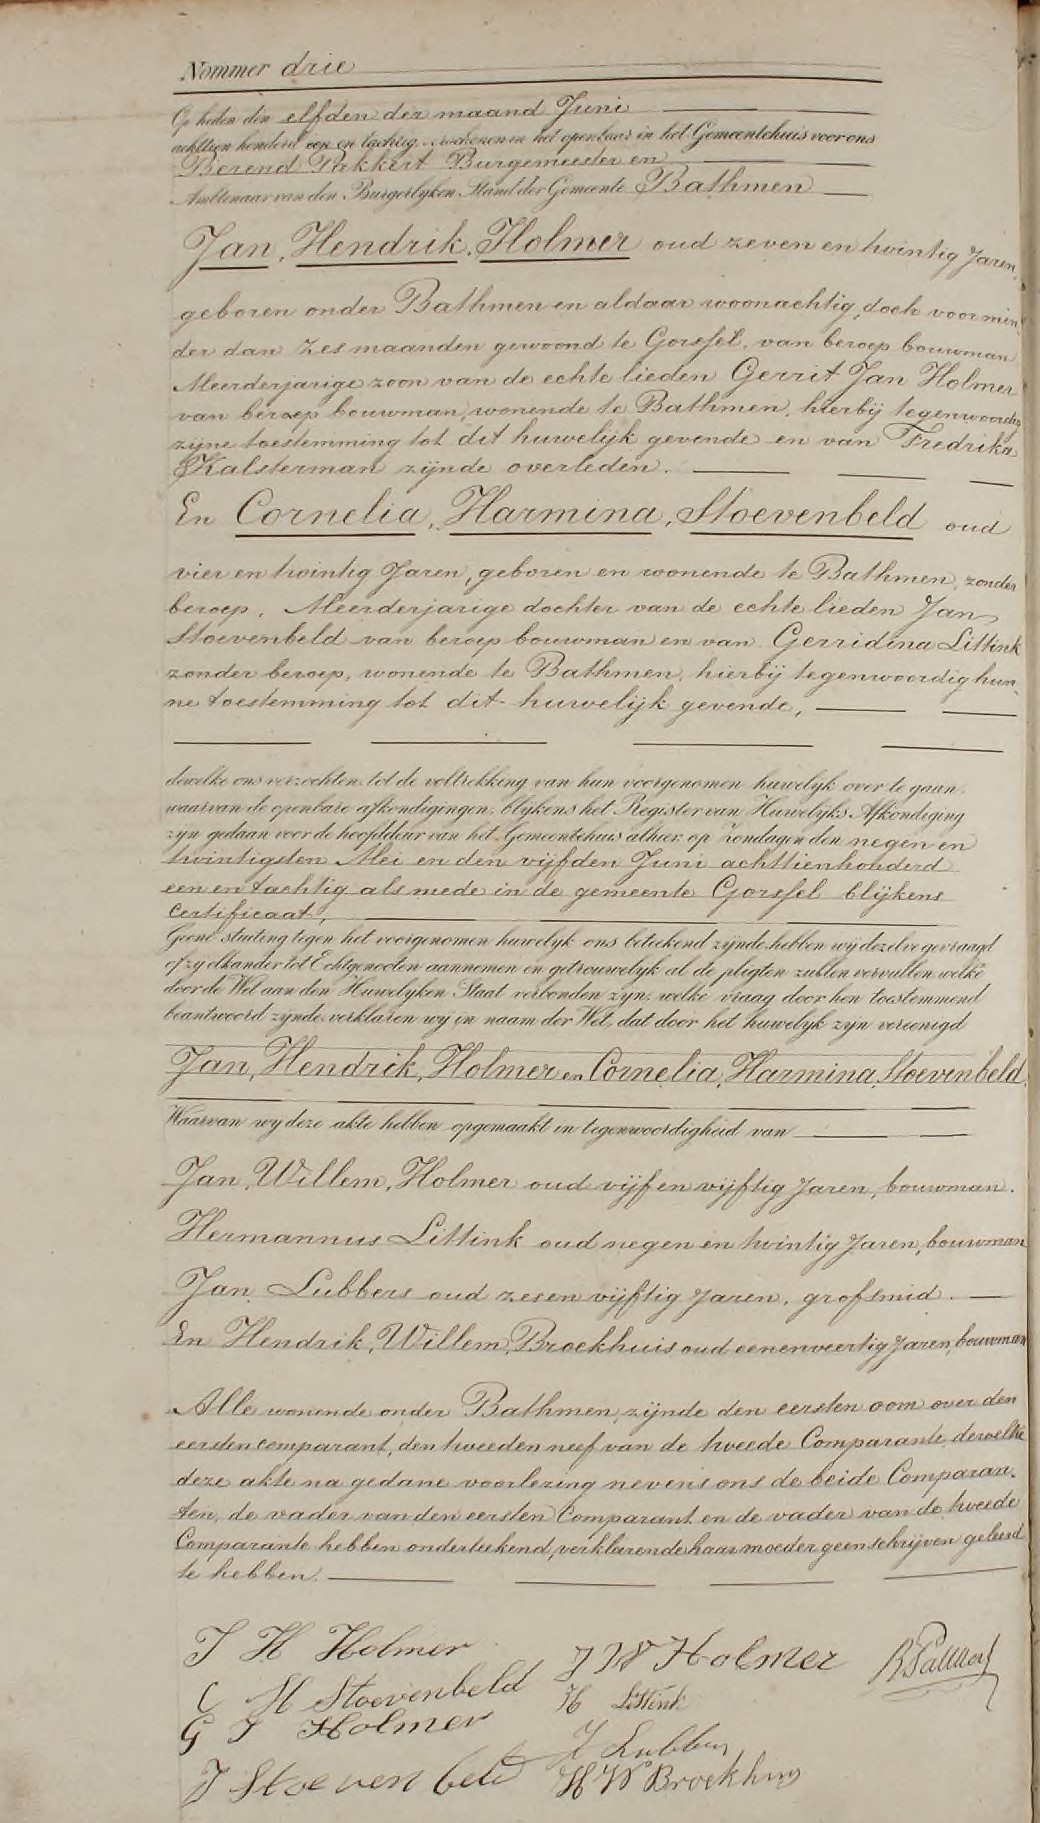 Nommer drie
Op heden den elfden der maand Juni
achttien honderd een en tachtig, verschenen in het openbaar in het Gemeentehuis voor ons
Berend Pakkert Burgemeester en
Ambtenaar van den Burgerlyken Stand der Gemeente Bathmen
Jan, Hendrik, Holmer oud zeven en twintig Jaren,
geboren onder Bathmen en aldaar woonachtig, doch voor min¬
der dan zes maanden gewoond te Gorssel, van beroep bouwman
Meerderjarige zoon van de echte lieden Gerrit Jan Holmer
van beroep bouwman, wonende te Bathmen, hierbij tegenwoordig
zijne toestemming tot dit huwelijk gevende en van Fredrika
Kalsterman zijnde overleden.
En Cornelia, Harmina, Stoevenbeld oud
vier en twintig Jaren, geboren en wonende te Bathmen, zonder
beroep, Meerderjarige dochter van de echte lieden Jan
Stoevenbeld van beroep bouwman en van Gerridina Littink
zonder beroep, wonende te Bathmen, hierbij tegenwoordig hun¬
ne toestemming tot dit huwelijk gevende,
dewelke ons verzochten tot de voltrekking van hun voorgenomen huwelyk over te gaan,
waarvan de openbare afkondigingen, blykens het Register van Huwelyks Afkondiging
zyn gedaan voor de hoofddeur van het Gemeentehuis alhier, op Zondagen den negen en
twintigsten Mei en den vijfden Juni achttienhonderd
een en tachtig als mede in de gemeente Gorssel blijkens
certificaat,
Geene stuiting tegen het voorgenomen huwelyk ons beteekend zijnde, hebben wij dezelve gevraagd
of zy elkander tot Echtgenooten aannemen en getrouwelyk al de pligten zullen vervullen, welke
door de Wet aan den Huwelyken Staat verbonden zyn; welke vraag door hen toestemmend
beantwoord zijnde, verklaren wy in naam der Wet, dat door het huwelyk zijn vereenigd
Jan, Hendrik, Holmer en Cornelia, Harmina, Stoevenbeld,
Waarvan wy deze akte hebben opgemaakt in tegenwoordigheid van
Jan, Willem, Holmer oud vijf en vijftig Jaren, bouwman.
Hermannus Littink oud negen en twintig Jaren, bouwman
Jan Lubbers oud zes en vijftig Jaren, grofsmid.
En Hendrik, Willem, Broekhuis oud een en veertig Jaren, bouwman
Alle wonende onder Bathmen, zijnde den eersten oom over den
eersten comparant, den tweeden neef van de tweede Comparante, dewelke
deze akte na gedane voorlezing nevens ons de beide Comparan¬
ten, de vader van den eersten Comparant en de vader van de tweede
Comparante hebben onderteekend, verklarende haar moeder geen schrijven geleerd
te hebben.
J H Holmer
C H Stoevenbeld
G J Holmer
J Stoevenbeld
J W Holmer
H Littink
J Lubbers
H W Broekhuis
B Pakkert